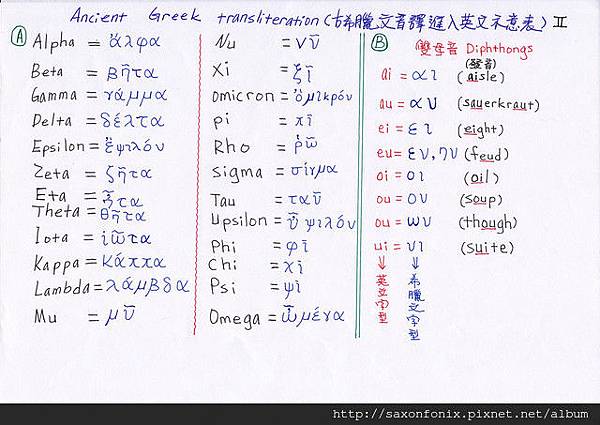 Ancient Greek transliteration (古希臘文音譯進入英文示意表) II
A
Alpha = ἄλφα
Beta = βῆτα
Gamma = γάμμα
Delta = δέλτα
Epsilon = ἒψιλόν
Zeta = ζῆτα
Eta = ἦτα
Theta = θῆτα
Iota = ἰῶτα
Kappa = κάππα
Lambda = λάμβδα
Mu = μῦ
Nu = νῦ
Xi = ξῖ
Omicron = ὀμικρόν
Pi = πῖ
Rho = ῥῶ
Sigma = σίγμα
Tau = ταῦ
Upsilon = ὖ ψιλόν
Phi = φῖ
Chi = χῖ
Psi = ψῖ
Omega = ὦμέγα
B
雙母音 Diphthongs
(發音)
ai = αι (aisle)
au = αυ (sauerkraut)
ei = ει (eight)
eu = ευ, ηυ (feud)
oi = οι (oil)
ou = ου (soup)
ou = ωυ (though)
ui = υι (suite)
英文字型
希臘文字型
http://saxonfonix.pixnet.net/album